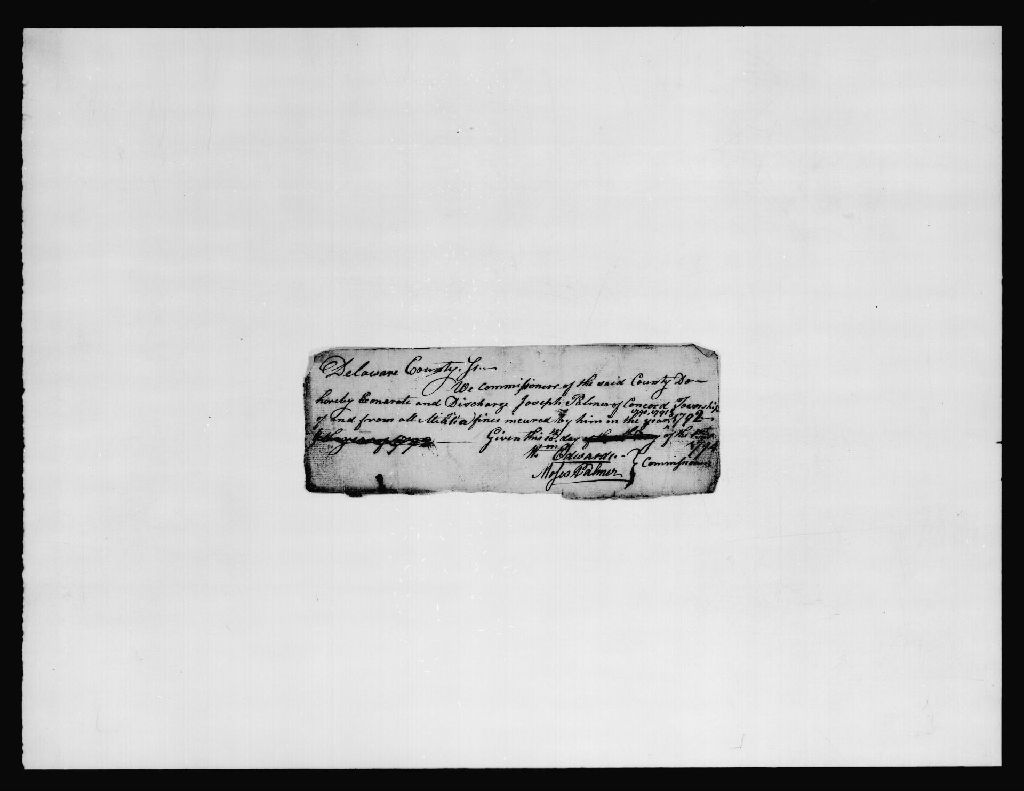 Delaware County, Ss
We Commissioners of the said County Do
hereby Exonerate and Discharge Joseph Palmer of Concord Township
of and from all Militia fines incured by him in the year 1792
Given this 10th day of the
1794
Wm Edwards
Moses Palmer } Commissioners